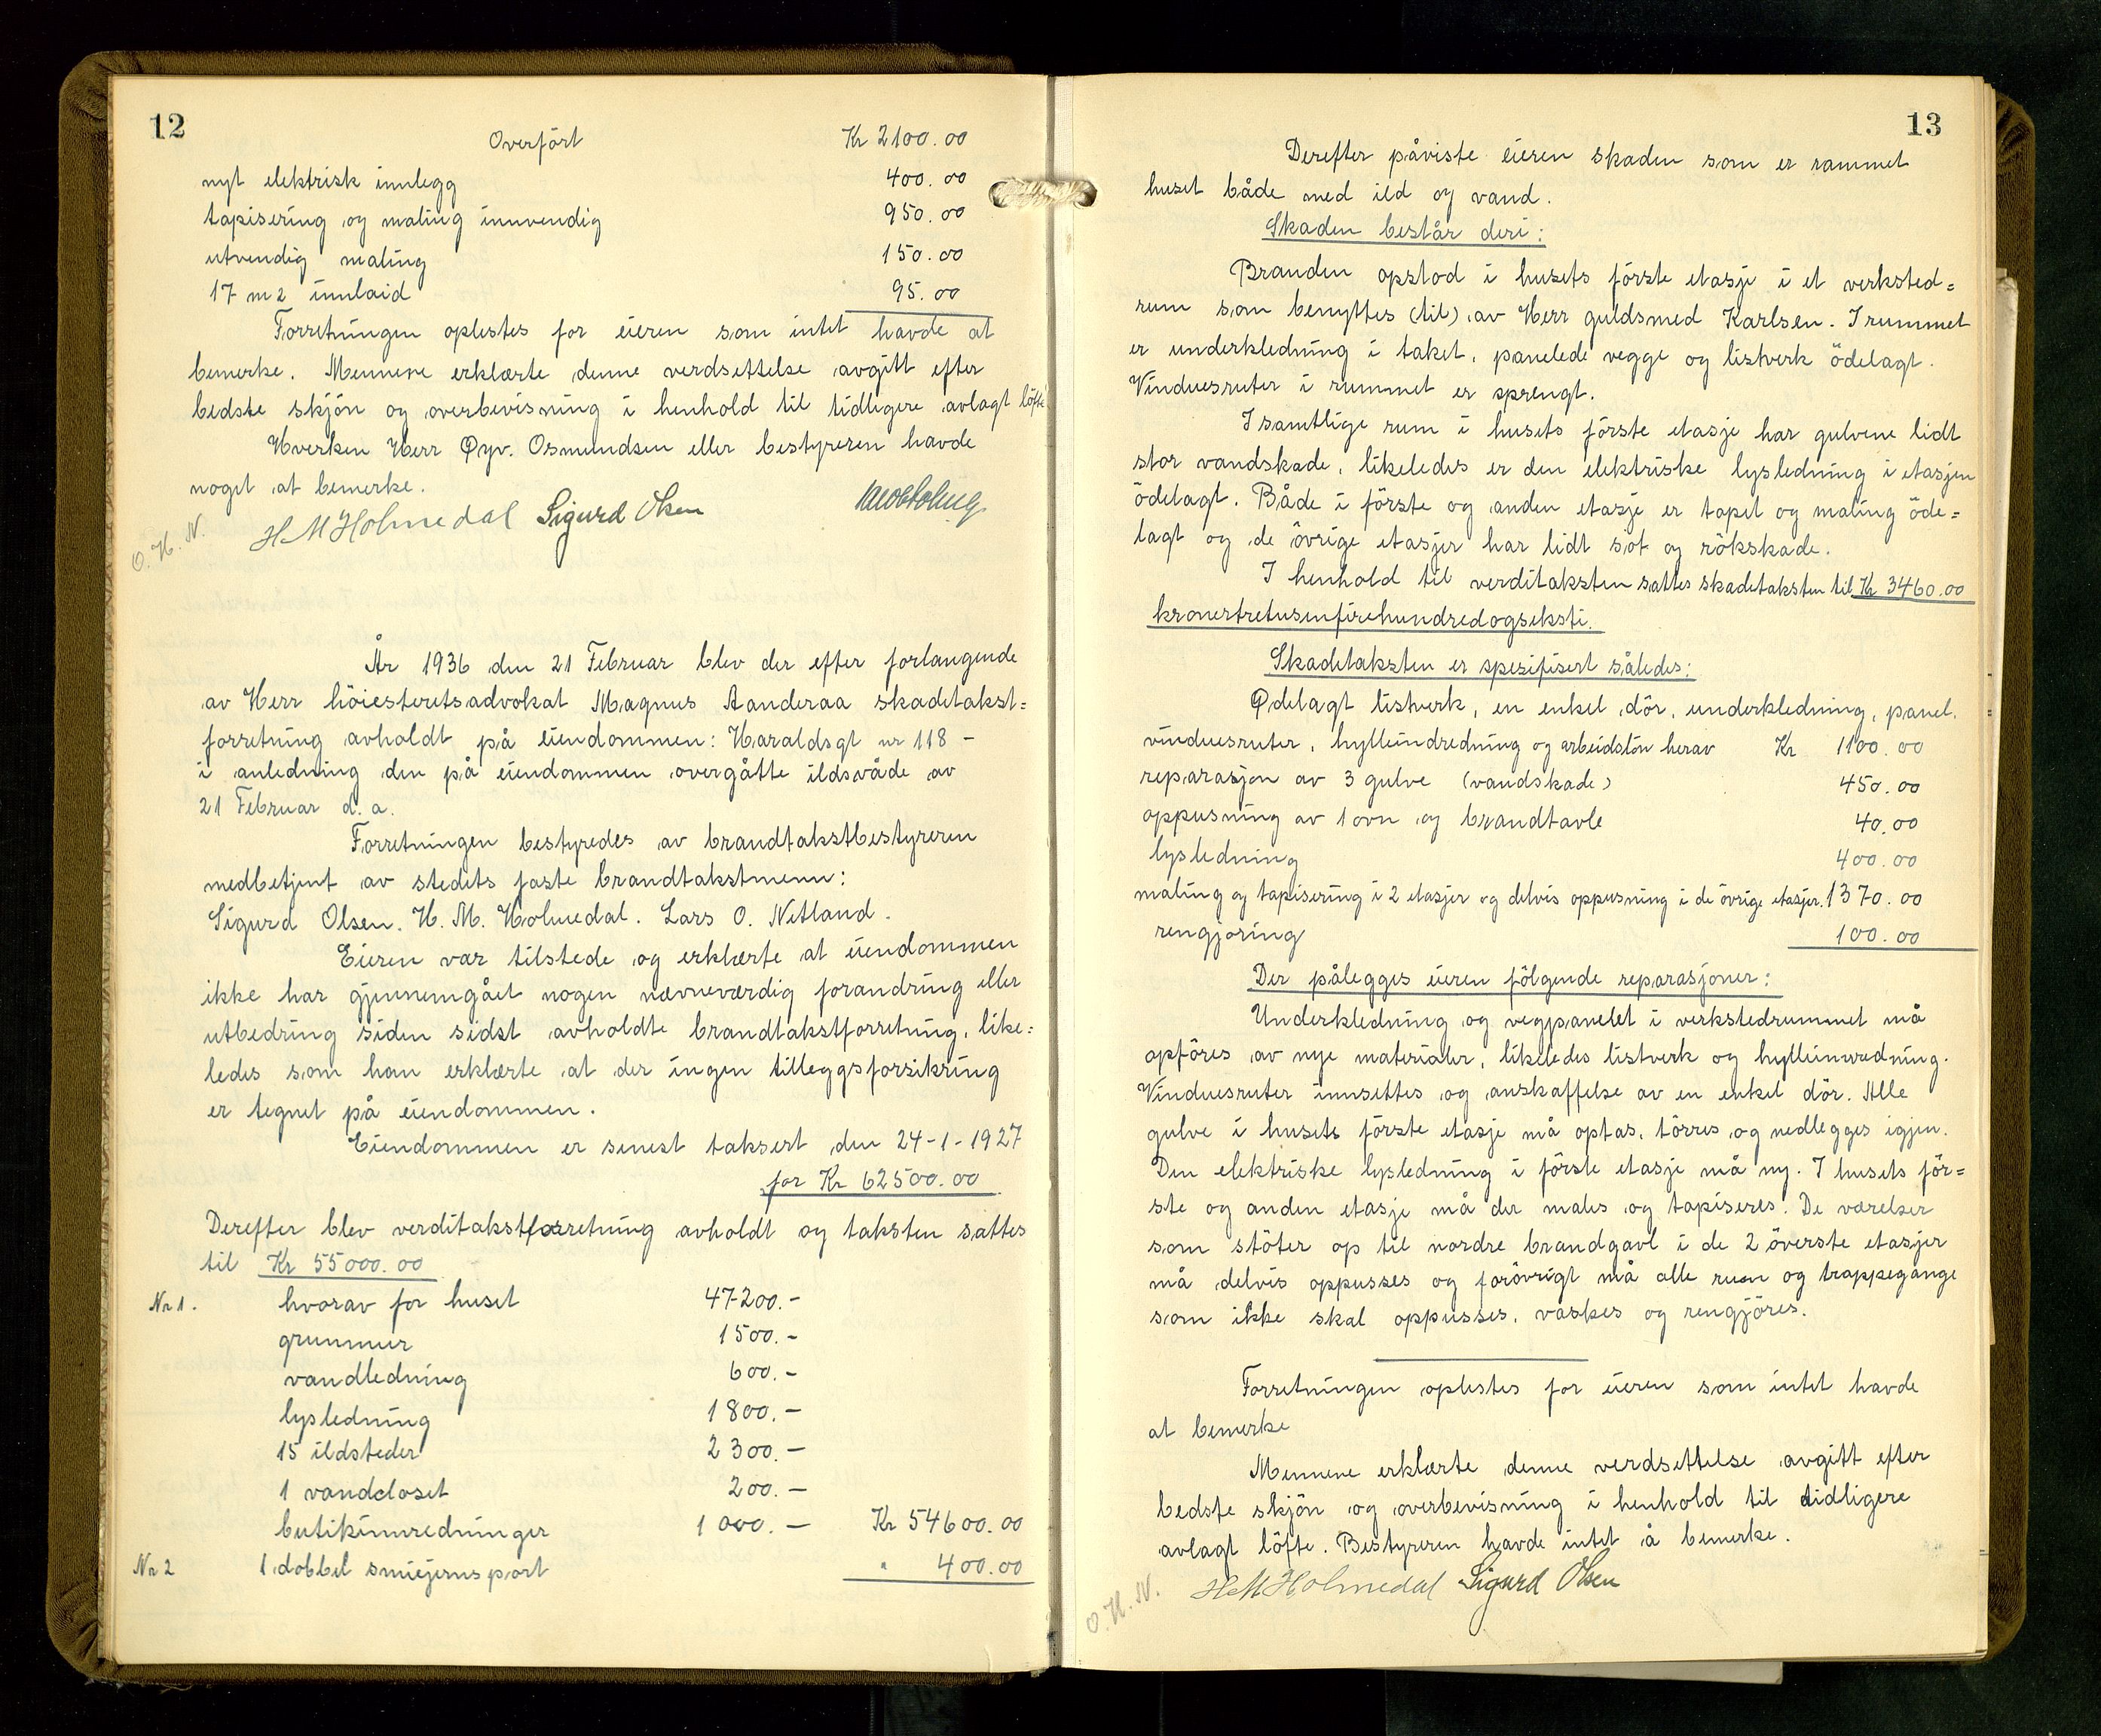 12
Overført Kr 2100.00
nyt elektrisk innlegg 400.00
tapisering og maling innvendig 950.00
utvendig maling 150.00
17 m2 innlaid 95.00
Forretningen oplestes for eieren som intet havde at
bemerke. Mennene erklærte denne verdsettelse avgitt efter
bedste skjön og overbevisning i henhold til tidligere avlagt löfte
Hverken Herr Øyv. Osmundsen eller bestyreren havde
noget at bemerke.
H M Holmedal Sigurd Olsen
O. H. N.
År 1936 den 21 Februar blev der efter forlangende
av Herr höiesteretsadvokat Magnus Aanderaa skadetakst=
forretning avholdt på eiendommen: Haraldsgt nr 118 -
i anledning den på eiendommen overgåtte ildsvåde av
21 Februar d. a.
Forretningen bestyredes av brandtakstbestyreren
medbetjent av stedets faste brandtakstmenn:
Sigurd Olsen. H. M. Holmedal. Lars O. Netland.
Eieren var tilstede og erklærte at eiendommen
ikke har gjennemgået nogen nævneværdig forandring eller
utbedring siden sidst avholdte brandtakstforretning, like=
ledes som han erklærte at der ingen tilleggsforsikring
er tegnet på eiendommen.
Eiendommen er senest taksert den 24-1-1927
for Kr 62500.00
Derefter blev verditakstforretning avholdt og taksten sattes
til Kr 55000.00
Nr 1. hvorav for huset 47200.-
grunnmur 1500.-
vandledning 600.-
lysledning 1800.-
15 ildsteder 2300.-
1 vandcloset 200.-
butikinnredninger 1000.- Kr 54600.00
Nr 2 1 dobbel smiejernsport " 400.00
13
Derefter påviste eieren skaden som er rammet
huset både med ild og vand.
Skaden består deri:
Branden opstod i husets förste etasje i et verksted=
rum som benyttes (til) av Herr guldsmed Karlsen. I rummet
er underkledning i taket, panelede vegge og listverk ödelagt.
Vinduesruter i rummet er sprengt.
I samtlige rum i husets förste etasje har gulvene lidt
stor vandskade, likeledes er den elektriske lysledning i etasjen
ödelagt. Både i förste og anden etasje er tapet og maling öde=
lagt og de övrige etasjer har lidt sot og rökskade.
I henhold til verditaksten sattes skadetaksten til Kr 3460.00
kronertretusenfirehundredogseksti.
Skadetaksten er spesifisert således:
Ødelagt listverk, en enkel dör, underkledning, panel,
vinduesruter, hylleindredning og arbeidslön herav Kr 1100.00
reparasjon av 3 gulve (vandskade) 450.00
oppusning av 1 ovn og brandtavle 40.00
lysledning 400.00
maling og tapisering i 2 etasjer og delvis oppusning i de övrige etasjer. 1370.00
rengjöring 100.00
Der pålegges eieren fölgende reparasjoner:
Underkledning og vegpanelet i verkstedrummet må
opföres av nye materialer, likeledes listverk og hylleinnredning.
Vinduesruter innsettes og anskaffelse av en enkel dör. Alle
gulve i husets förste etasje må optas, törres og nedlegges igjen.
Den elektriske lysledning i förste etasje må ny. I husets för=
ste og anden etasje må der males og tapiseres. De værelser
som stöter op til nordre brandgavl i de 2 överste etasjer
må delvis oppusses og forövrigt må alle rum og trappegange
som ikke skal oppusses, vaskes og rengjöres.
Forretningen oplestes for eieren som intet havde
at bemerke
Mennene erklærte denne verdsettelse avgitt efter
bedste skjön og overbevisning i henhold til tidligere
avlagt löfte. Bestyreren havde intet å bemerke.
H M Holmedal Sigurd Olsen
O. H. N.